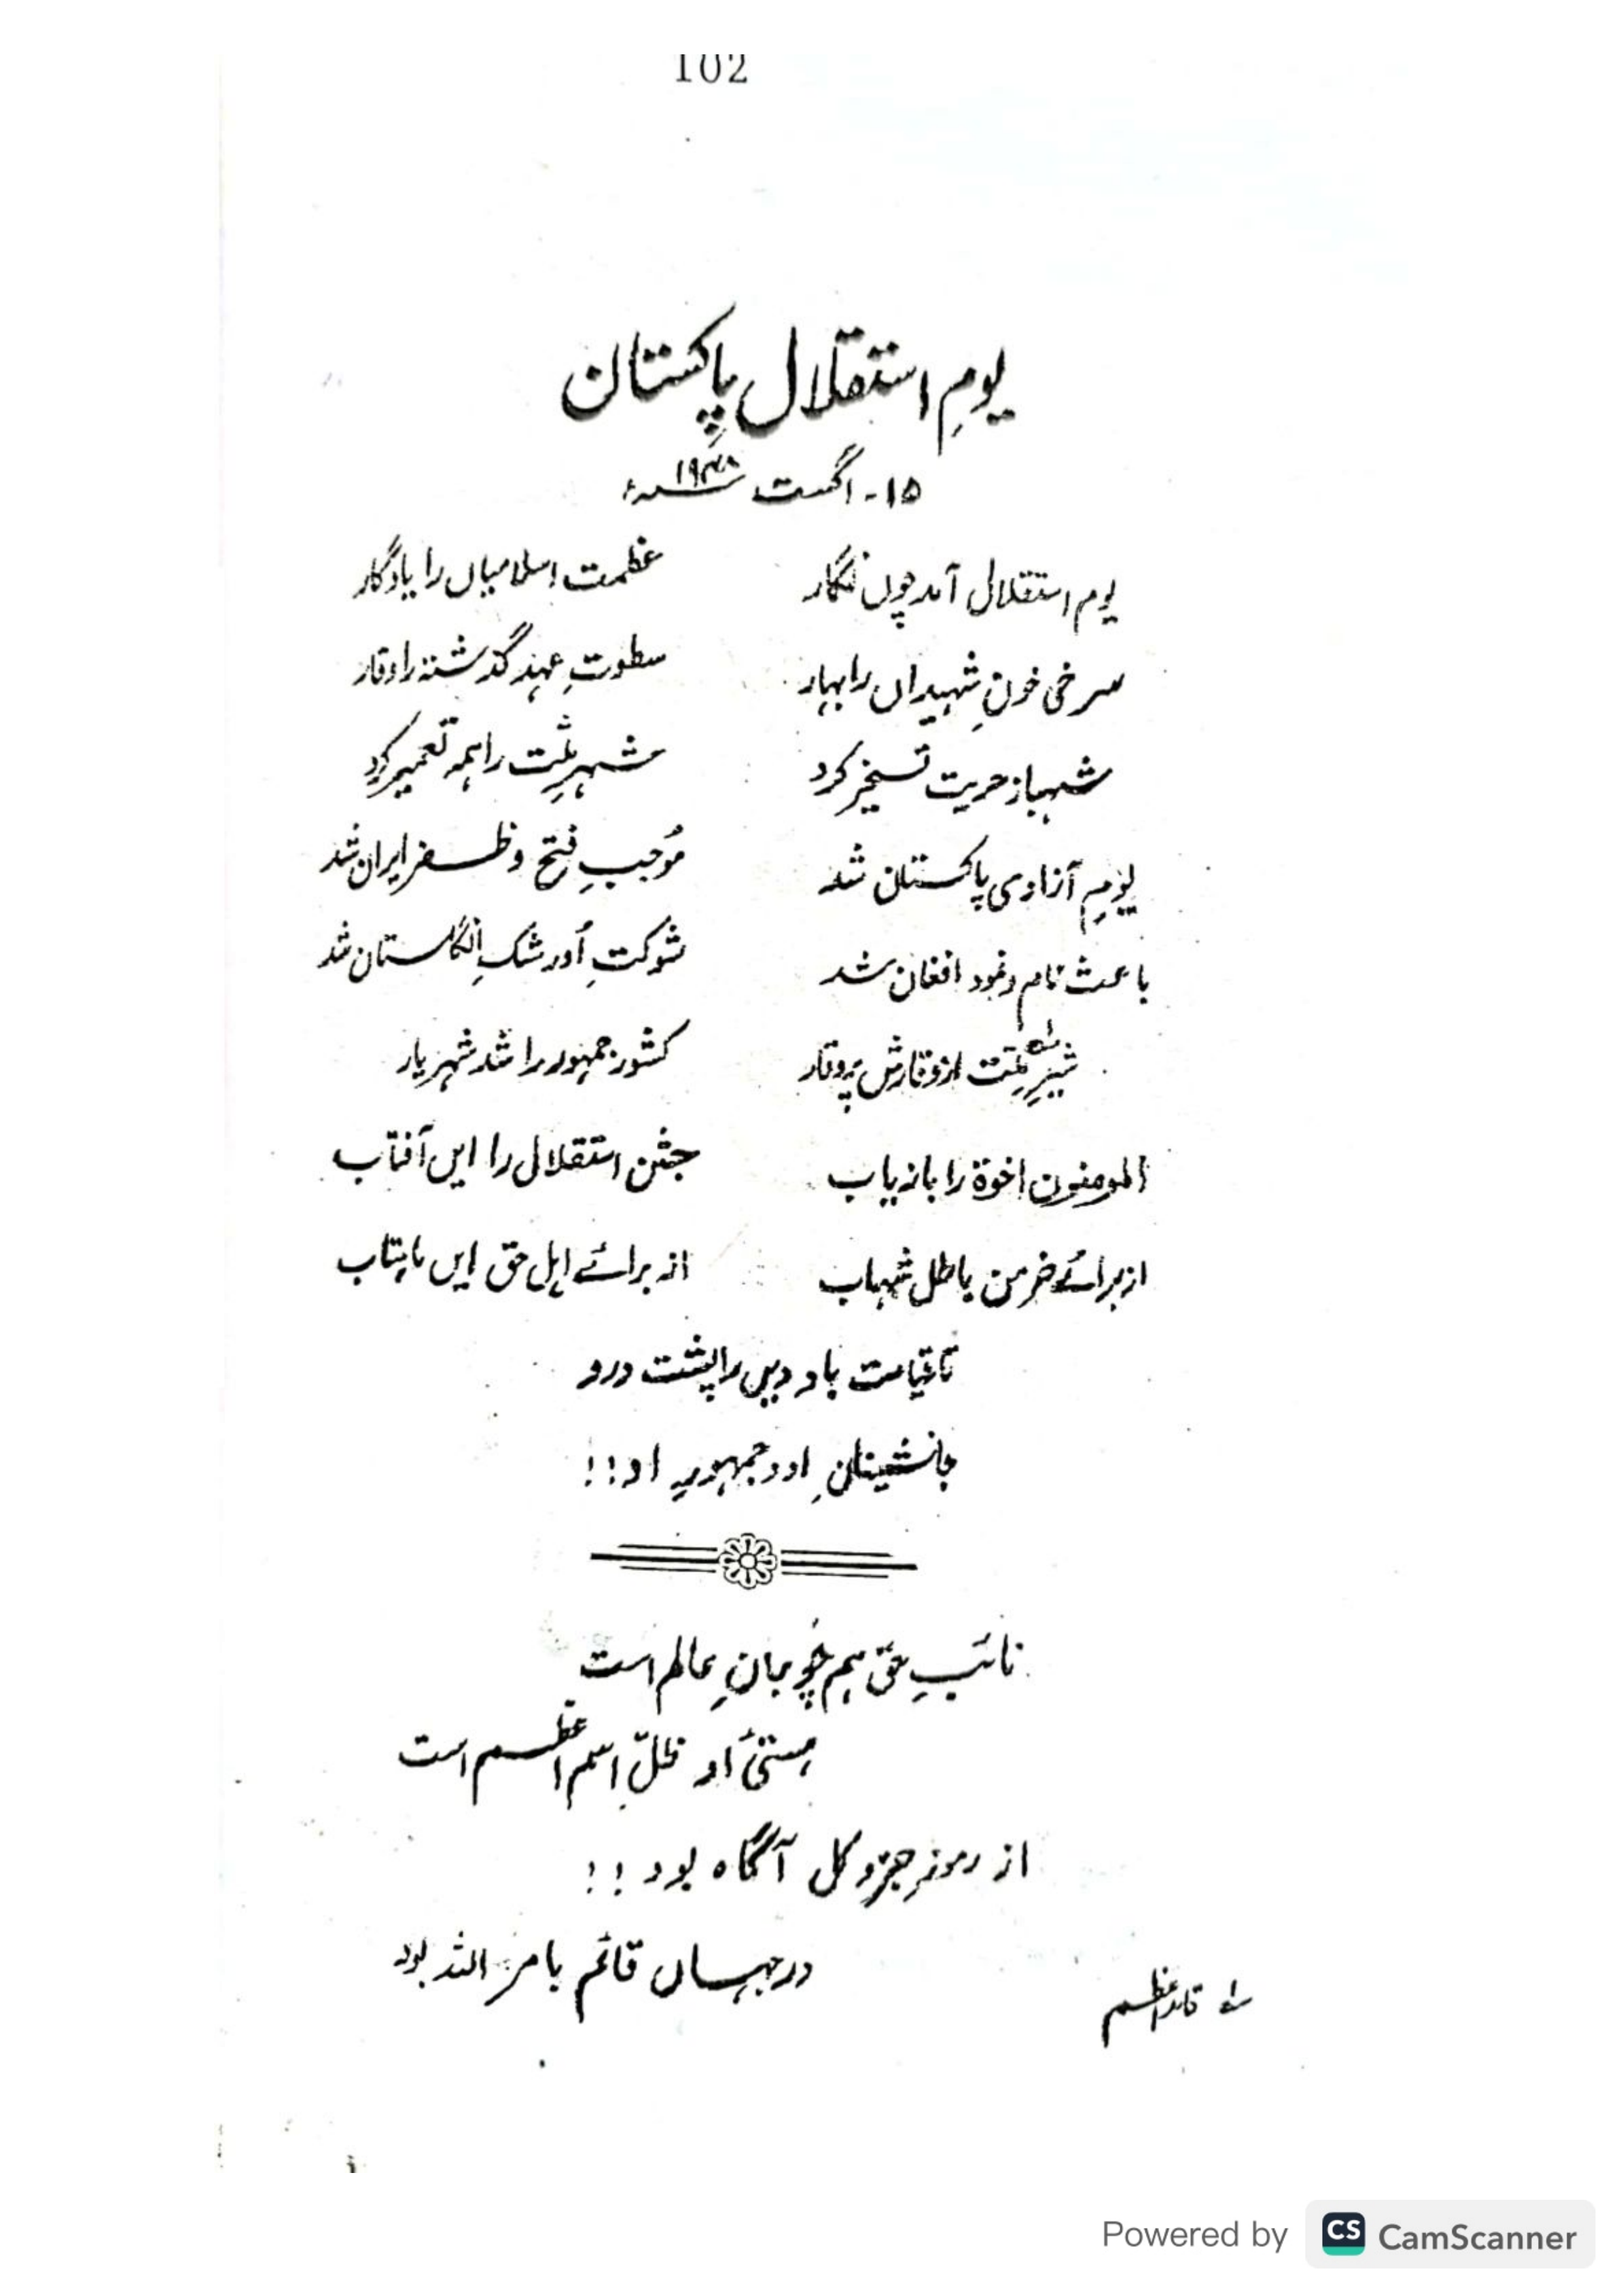 102
یومِ استقلال پاکستان
۱۵- اگست ۱۹۴۸ء
یوم استقلال آمد چوں نگار عظمت اسلامیاں را یادگار
سرخی خونِ شہیداں را بہار سطوتِ عہد گذشتہ را وقار
شہباز حریت تسخیر کرد شہرِ ملّت را ہمہ تعمیر کرد
یومِ آزادی پاکستان شد مُوجبِ فتح و ظفر ایران شد
باعث نام و نمود افغان شد شوکتِ اُو رشکِ انگلستان شد
شیرِ ملّت از وقارش پُر وقار کشور جمہور را شد شہریار
المومنون اخوۃ را باز یاب جشن استقلال را ایں آفتاب
از برائے خرمن باطل شہاب از برائے اہل حق ایں ماہتاب
تا قیامت باد دیں را پشت و رو
جانشینانِ او و جمہوریہ او!!
نائبِ حق ہم چُو جانِ عالم است
ہستیٔ او ظلِّ اسم اعظم است
از رموزِ جزو کل آگاہ بود!!
در جہاں قائم بامر اللہ بود
۱ے قائد اعظم
Powered by CS CamScanner